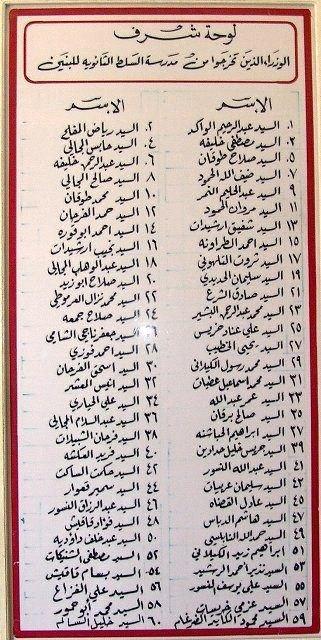 لوحة شرف
الوزراء الذين تخرجوا من مدرسة السلط الثانوية للبنين
الاسم الاسم
١. السيد عبدالرحيم الواكد ٢. السيد رياض المفلح
٣. السيد مصطفى خليفه ٤. السيد حابس المجالي
٥. السيد صلاح طوقان ٦. السيد عبدالرحمن خليفه
٧. السيد ضيف الله الحمود ٨. السيد صالح المجالي
٩. السيد عبدالحليم النمر ١٠. السيد محمد طوقان
١١ السيد مروان الحمود ١٢ السيد حمد الفرحان
١٣ السيد شفيق ارشيدات ١٤ السيد احمد ابوقوره
١٥ السيد احمد الطراونه ١٦ السيد نجيب ارشيدات
١٧ السيد ثروت التلهوني ١٨ السيد عبدالوهاب المجالي
١٩ السيد سليمان الحديدي ٢٠ السيد ابوزيد
٢١ السيد صادق الشرع ٢٢ السيد محمد نزال العرموطي
٢٣ السيد محمد عبدالرحيم البشير ٢٤ السيد صلاح جمعه
٢٥ السيد علي عناد خريس السيد جعفر ناجي الشامي
٢٧ السيد يحيى الخطيب ٢٨ السيد احمد فوزي
٢٩ السيد محمد رسول الكيلاني ٣٠ السيد اسحق الفرحان
٣١ السيد محمد اسماعيل عضيبات ٣٢ السيد انيس المعشر
٣٣ السيد عمر عبدالله ٣٤ السيد علي الحياري
٣٥ السيد صالح برقان ٣٦ السيد عبدالسلام المجالي
٣٧ السيد ابراهيم الحباشنه ٣٨ السيد فرحان الشبيلات
٣٩ السيد جريس خليل حدادين ٤٠ السيد فريد العكشه
٤١ السيد عبدالله النسور ٤٢ السيد حكمت الساكت
٤٣ السيد سليمان عربيات ٤٤ السيد سمير قعوار
٤٥ السيد عادل القضاه ٤٦ السيد عبدالرزاق النسور
٤٧ السيد هاشم الدباس ٤٨ السيد فؤاد قاقيش
٤٩ السيد حمد الله النابلسي ٥٠ السيد عبد خلف داوديه
٥١ السيد ابراهيم زيد الكيلاني ٥٢ السيد مصطفى الشنيكات
٥٣ السيد نذير ارشيد ٥٤ السيد بسام قاقيش
٥٥ السيد علي يوسف النسور ٥٦ السيد علي الفزاع
٥٧ السيد عزمي خريسات ٥٨ السيد محمد ابو حمور
٥٩ السيد محمود الكايد الضرغام ٦٠ السيد خليل السالم